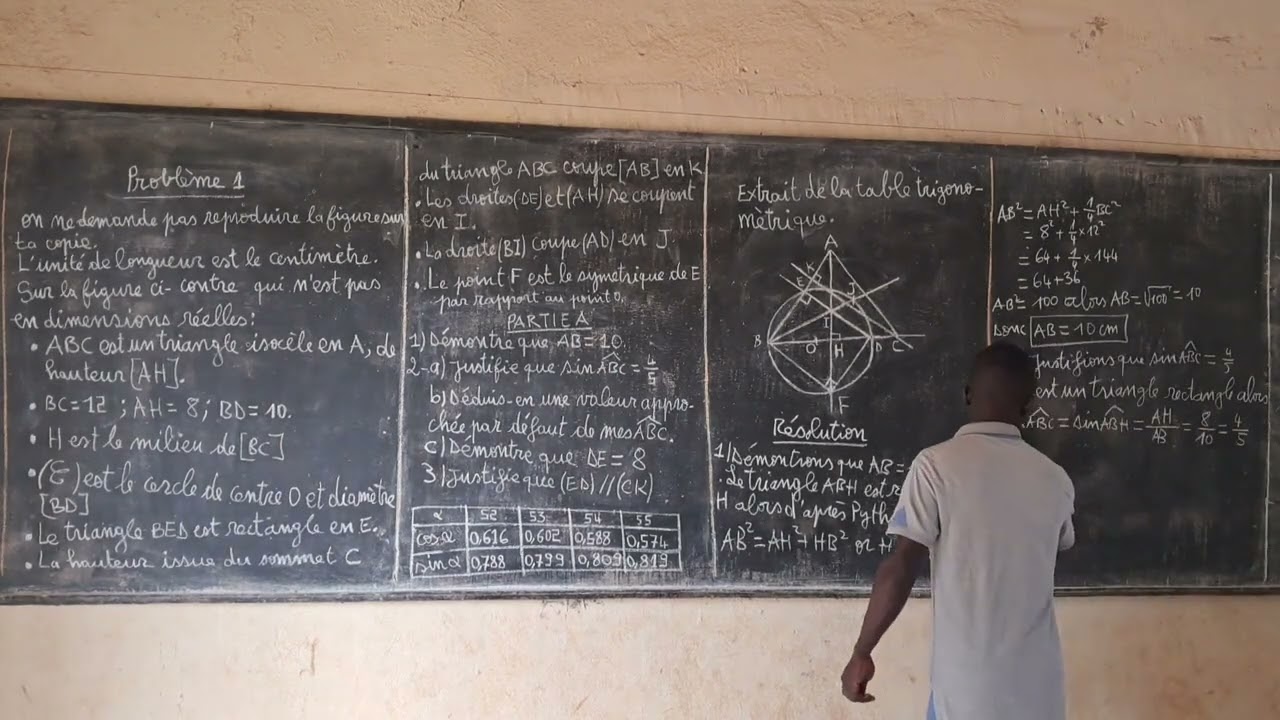 Problème 1
on ne demande pas reproduire la figure sur
ta copie.
L'unité de longueur est le centimètre.
Sur la figure ci-contre qui n'est pas
en dimensions réelles:
• ABC est un triangle isocèle en A, de
hauteur [AH].
• BC=12 ; AH=8; BD=10.
• H est le milieu de [BC]
• (ℰ) est le cercle de centre O et diamètre
[BD]
• Le triangle BED est rectangle en E.
• La hauteur issue du sommet C
du triangle ABC coupe [AB] en K
• Les droites (DE) et (AH) se coupent
en I.
• La droite (BI) coupe (AD) en J.
• Le point F est le symétrique de E
par rapport au point O.
PARTIE A
1) Démontre que AB=10.
2-a) Justifie que sin ABĈ = 4/5
b) Déduis-en une valeur appro-
chée par défaut de mes ABĈ.
c) Démontre que DE=8
3) Justifie que (ED)//(CK)
α 52 53 54 55
cosα 0,616 0,602 0,588 0,574
sinα 0,788 0,799 0,809 0,819
Extrait de la table trigono-
métrique.
A
K
E
J
I
B O H D C
F
Résolution
1) Démontrons que AB=
• Le triangle ABH est r
H alors d'après Pyth
AB² = AH² + HB² or H
AB² = AH² + 1/4 BC²
= 8² + 1/4 × 12²
= 64 + 1/4 × 144
= 64 + 36
AB² = 100 alors AB = √100 = 10
Donc AB = 10 cm
Justifions que sin ABĈ = 4/5
est un triangle rectangle alors
ABĈ = sin ABĤ = AH/AB = 8/10 = 4/5